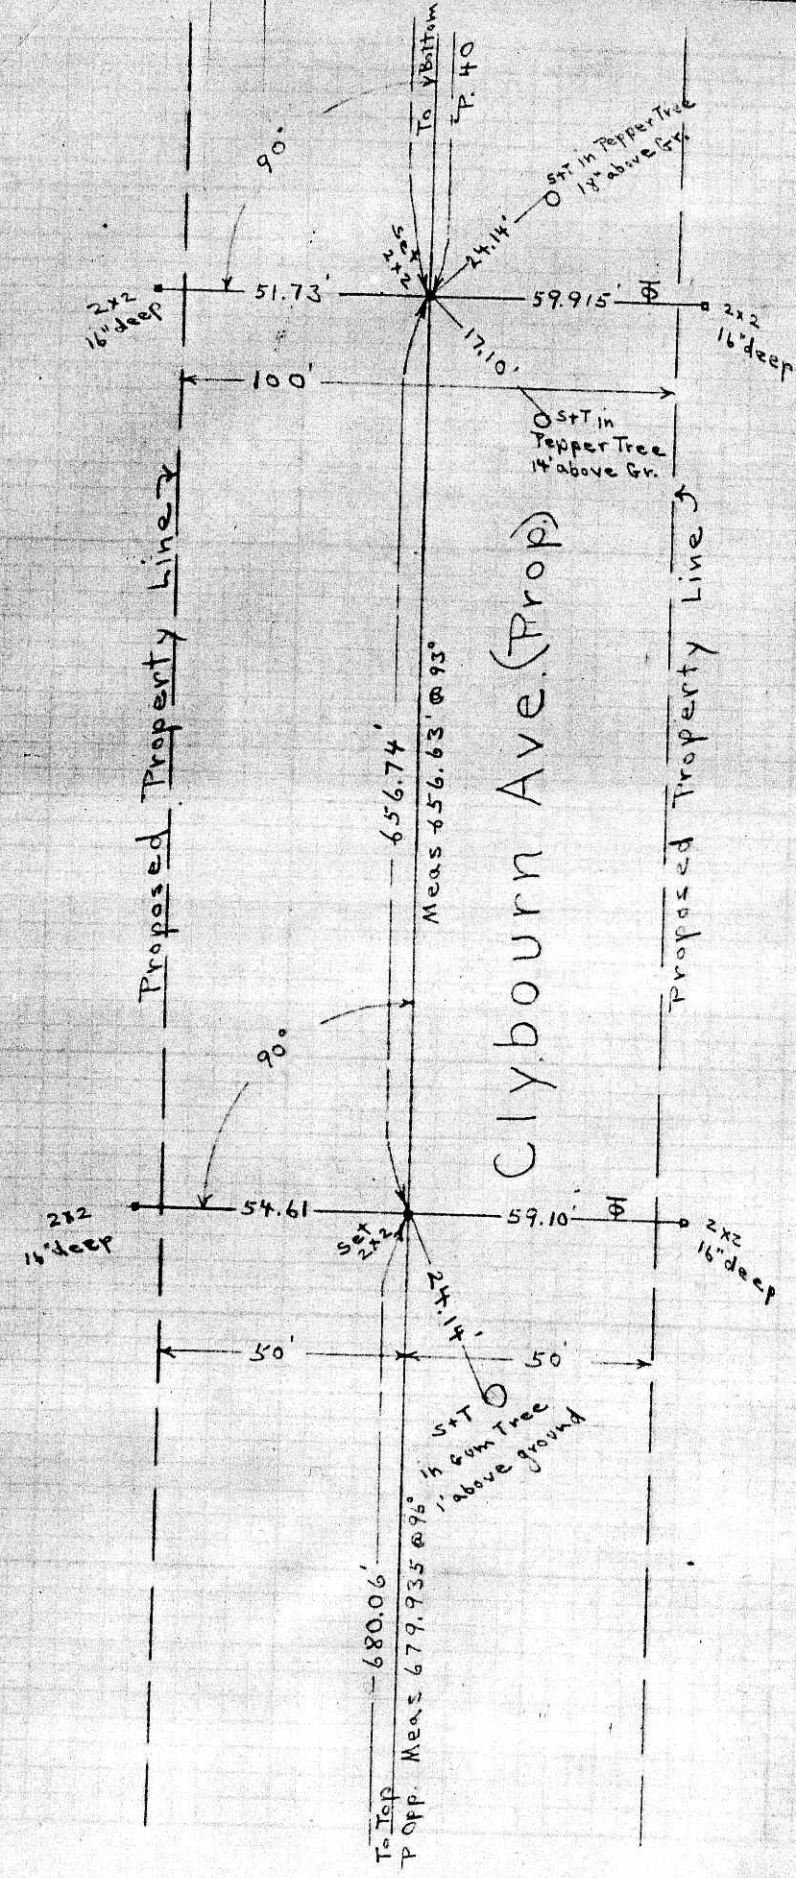 To Bottom
P. 40
90°
S+T in Pepper Tree
18" above Gr.
24.14'
Set
2x2
2x2
16" deep
51.73'
59.915'
2x2
16" deep
17.10'
100'
S+T in
Pepper Tree
14' above Gr.
Proposed Property Line
656.74'
Meas 656.63' @ 93°
Clybourn Ave. (Prop)
Proposed Property Line
90°
2x2
16" deep
54.61
Set
2x2
59.10'
2x2
16" deep
24.14'
50'
50'
S+T
in Gum Tree
1' above ground
680.06'
Meas 679.935 @ 96°
To Top
P Opp.